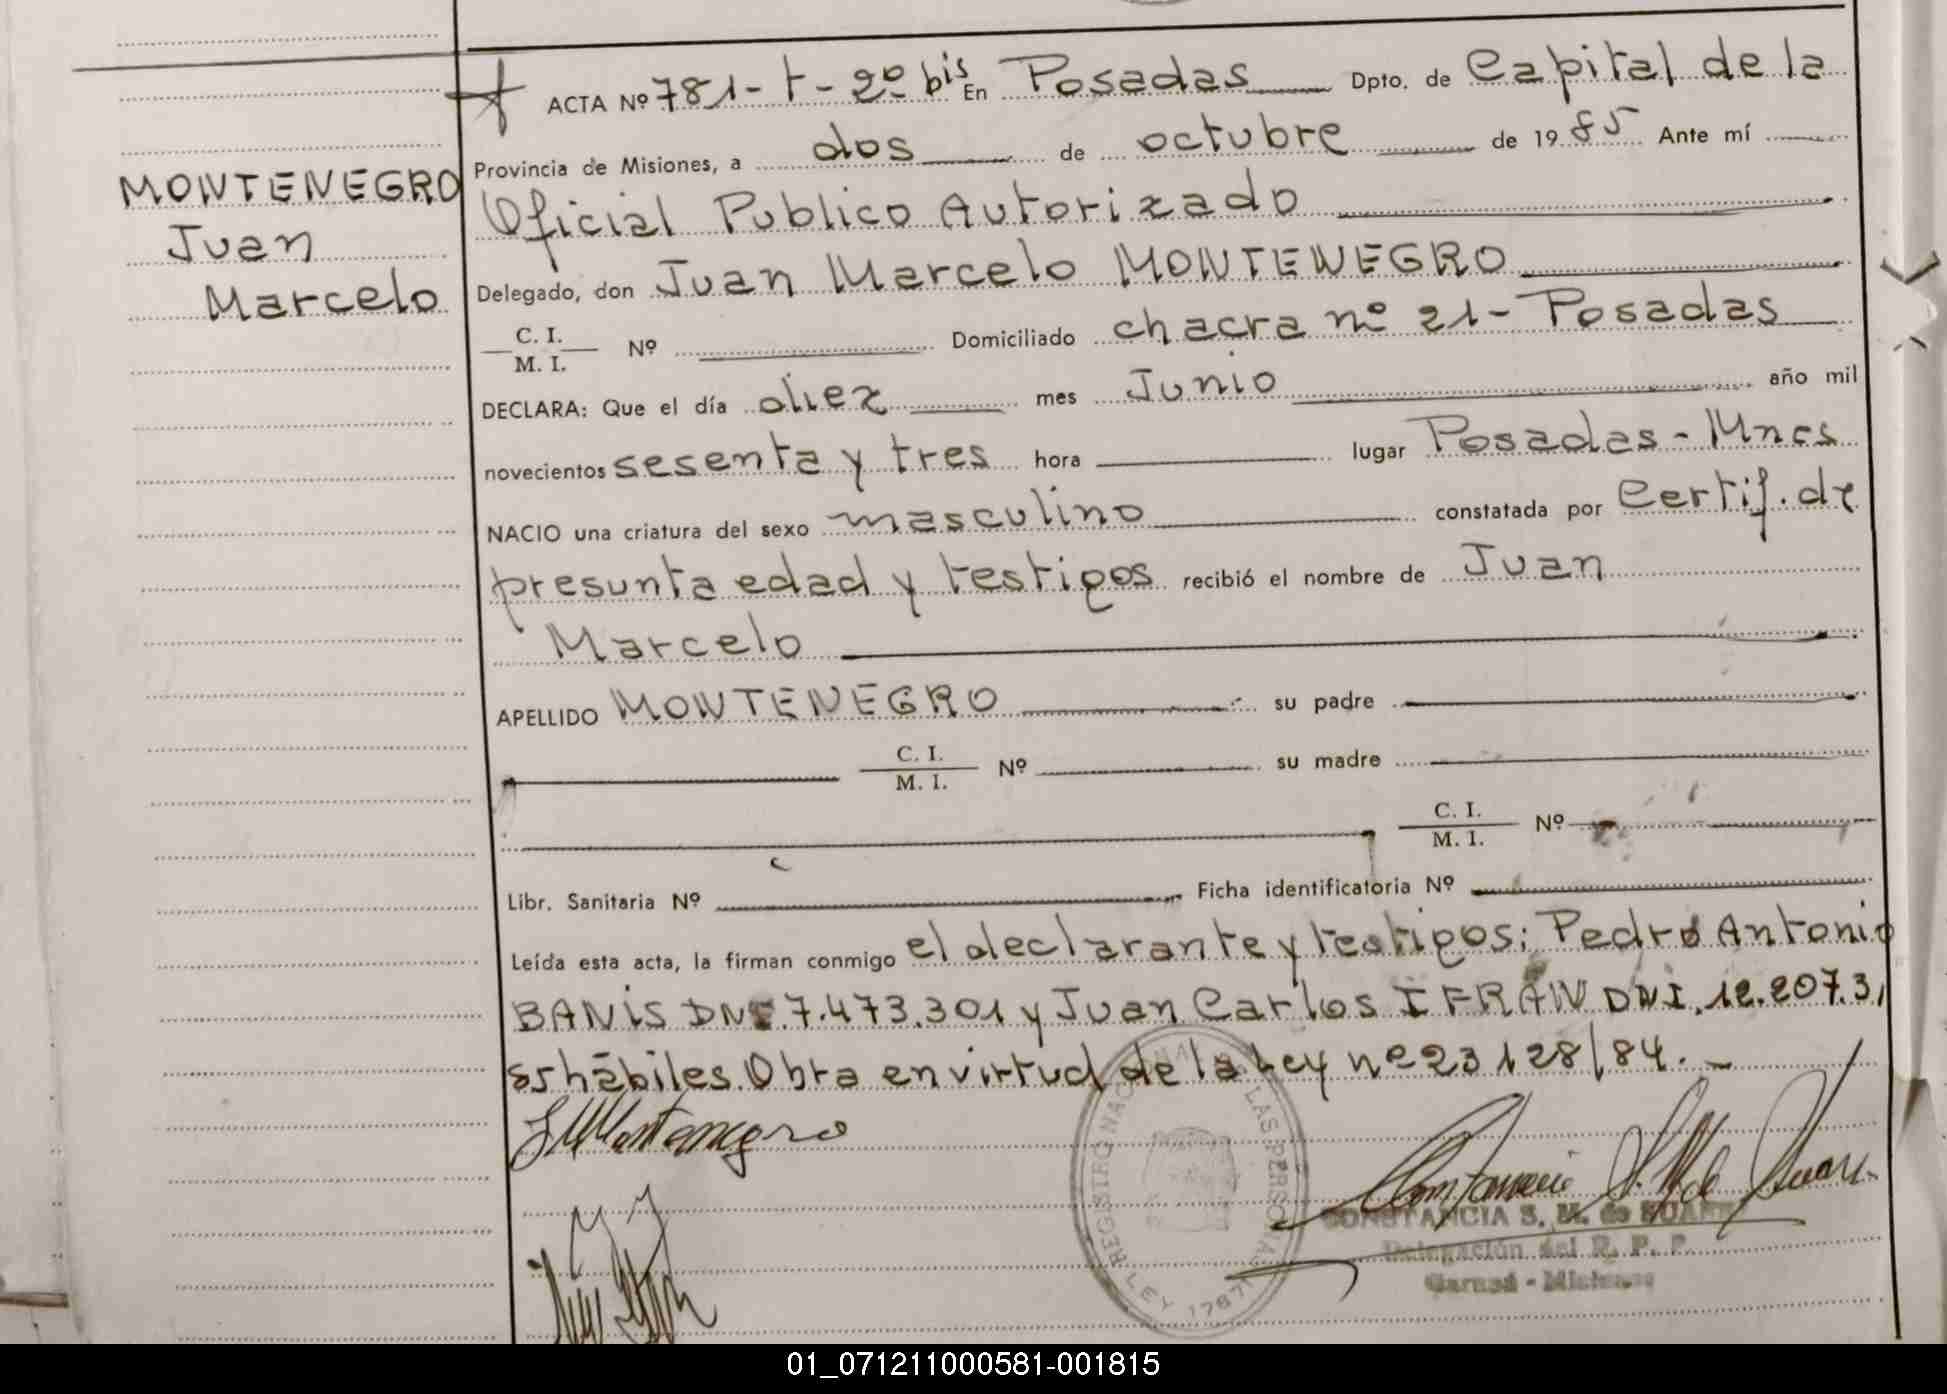 ACTA Nº 781-t-2º bis En Posadas Dpto. de Capital de la
Provincia de Misiones, a dos de octubre de 1985 Ante mí
Oficial Publico Autorizado
MONTENEGRO
Juan
Marcelo
Delegado, don Juan Marcelo MONTENEGRO
C. I.
M. I.
Nº Domiciliado chacra nº 21- Posadas
DECLARA: Que el día diez mes Junio año mil
novecientos sesenta y tres hora lugar Posadas - Mnes
NACIO una criatura del sexo masculino constatada por Certif. de
presunta edad y testigos recibió el nombre de Juan
Marcelo
APELLIDO MONTENEGRO su padre
C. I.
M. I.
Nº su madre
C. I.
M. I.
Nº
Libr. Sanitaria Nº Ficha identificatoria Nº
Leída esta acta, la firman conmigo el declarante y testigos: Pedro Antonio
BANIS DNI. 7.473.301 y Juan Carlos IFRAN DNI. 12.207.3
hábiles. Obra en virtud de la Ley nº 23128/84.-
JMMontenegro
REGISTRO NACIONAL DE LAS PERSONAS
LEY 17671
CONSTANCIA S. M. de SUAREZ
Delegación del R. P. P.
Garupá - Misiones
01_071211000581-001815